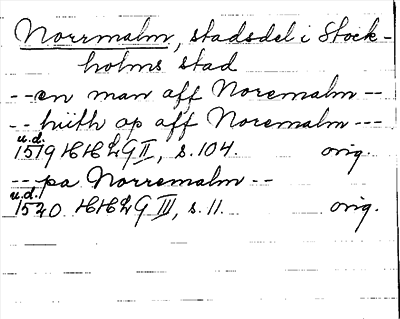 Norrmalm, stadsdel i Stock-
holms stad
--en man aff Noremalm--
--hiith op aff Noremalm---
u.d.
1519 HHLG II, s. 104. orig.
---pa Norremalm--
u.d.
1520 HHLG III, s. 11. orig.